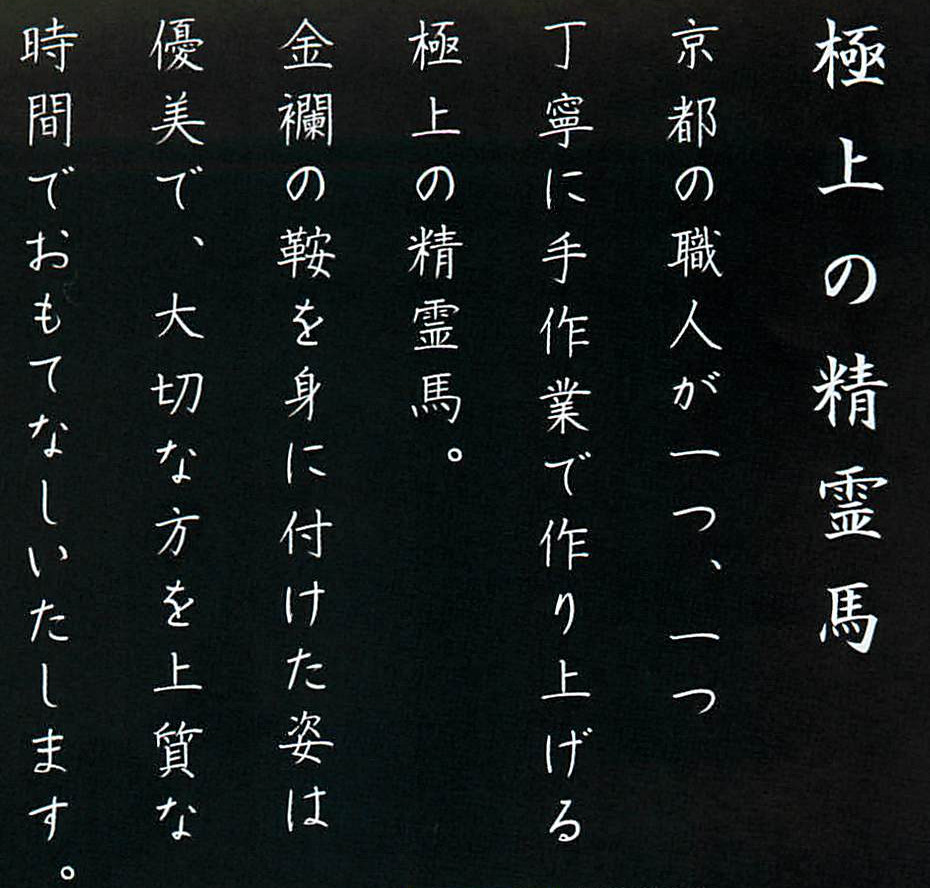 極上の精霊馬
京都の職人が一つ、一つ
丁寧に手作業で作り上げる
極上の精霊馬。
金襴の鞍を身に付けた姿は
優美で、大切な方を上質な
時間でおもてなしいたします。